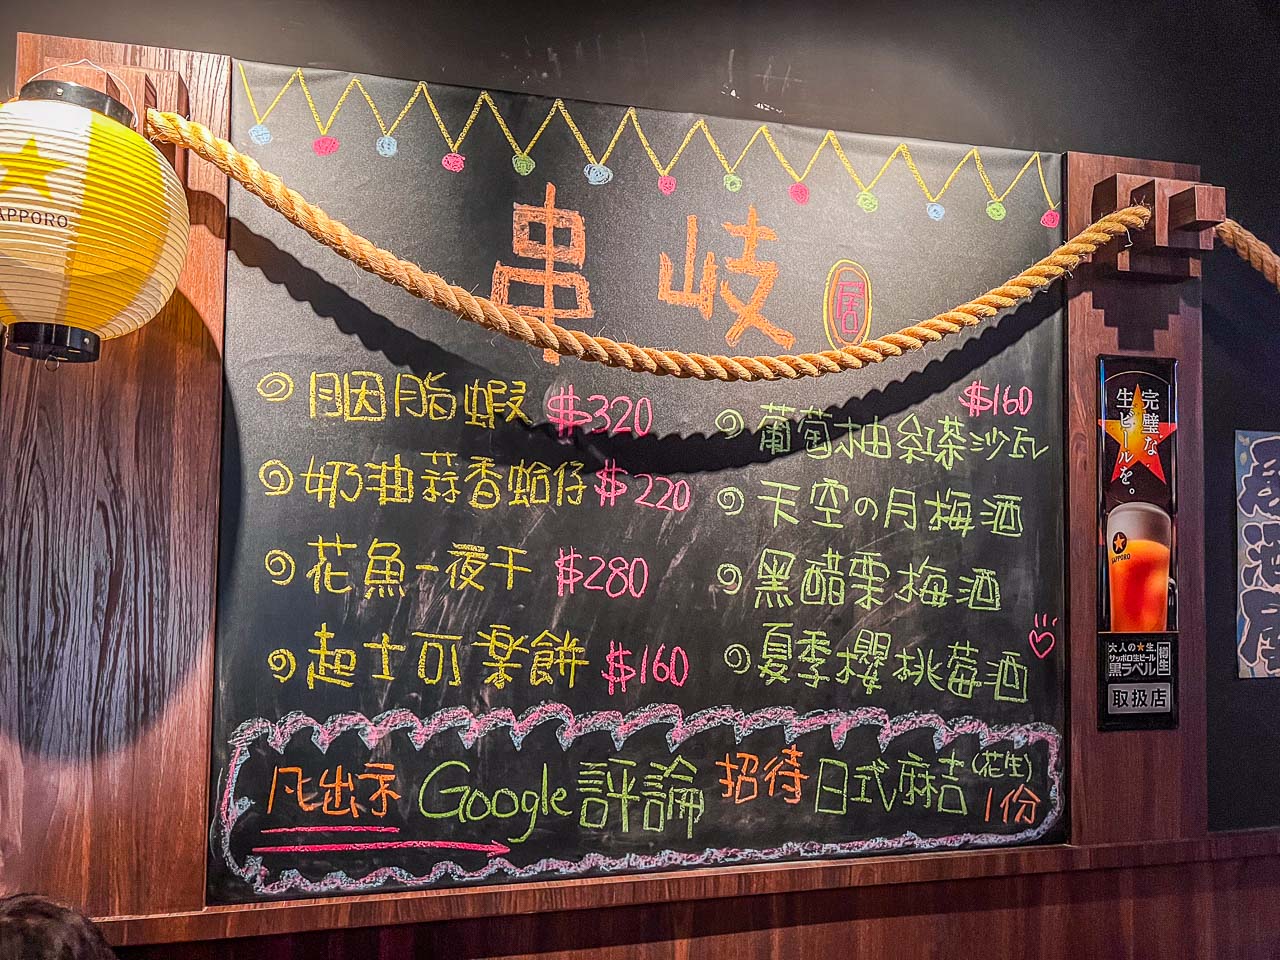 串岐
居
胭脂蝦 $320
奶油蒜香蛤仔 $220
花魚一夜干 $280
起士可樂餅 $160
$160
葡萄柚紅茶沙瓦
天空の月梅酒
黑醋栗梅酒
夏季櫻桃莓酒
凡出示 Google評論 招待 日式麻吉(花生)1份
SAPPORO
完璧な
生ビールを。
SAPPORO
大人の★生。
サッポロ生ビール
黒ラベル
樽生
取扱店